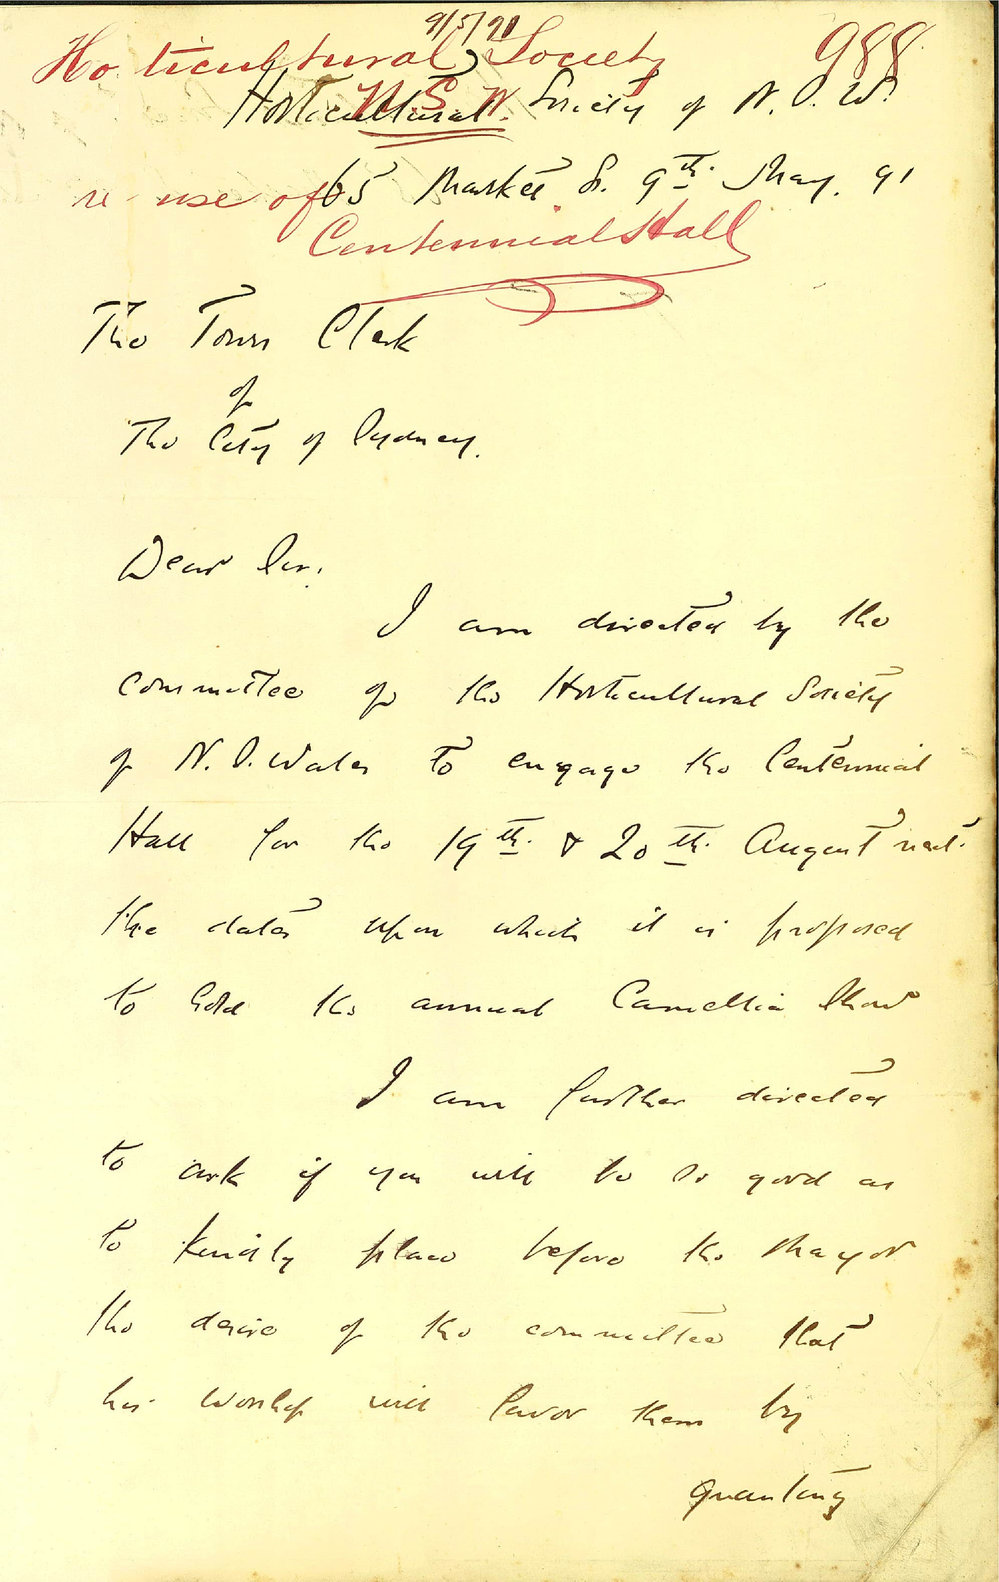 9/5/91
Horticultural Society
988
N. S. W.
Horticultural Society of N. S. W.
65 Market St. 9th May. 91
re use of
Centennial Hall
The Town Clerk
of
The City of Sydney.
Dear Sir.
I am directed by the
committee of the Horticultural Society
of N. S. Wales to engage the Centennial
Hall for the 19th & 20th August next.
the dates upon which it is proposed
to hold the annual Camellia Show
I am further directed
to ask if you will be so good as
to kindly place before the Mayor
the desire of the committee that
his Worship will favor them by
granting